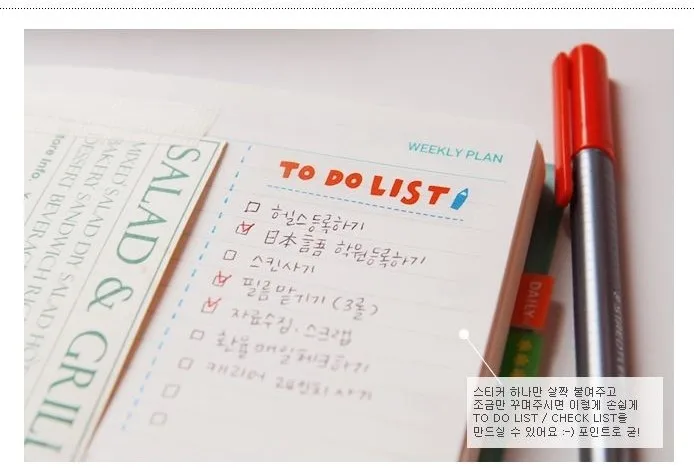 WEEKLY PLAN
TO DO LIST
헬스등록하기
日本語 학원등록하기
스킨사기
필름맡기기 (3롤)
자료수집, 스크랩
환불메일체크하기
캐리어
사기
SALAD & GRILL
MIXED SALAD DIY SALAD
BAKERY SANDWICH
DESSERT BEVERAGE
more info
DAILY
스티커 하나만 살짝 붙여주고
조금만 꾸며주시면 이렇게 손쉽게
TO DO LIST / CHECK LIST를
만드실 수 있어요 :-) 포인트로 굳!